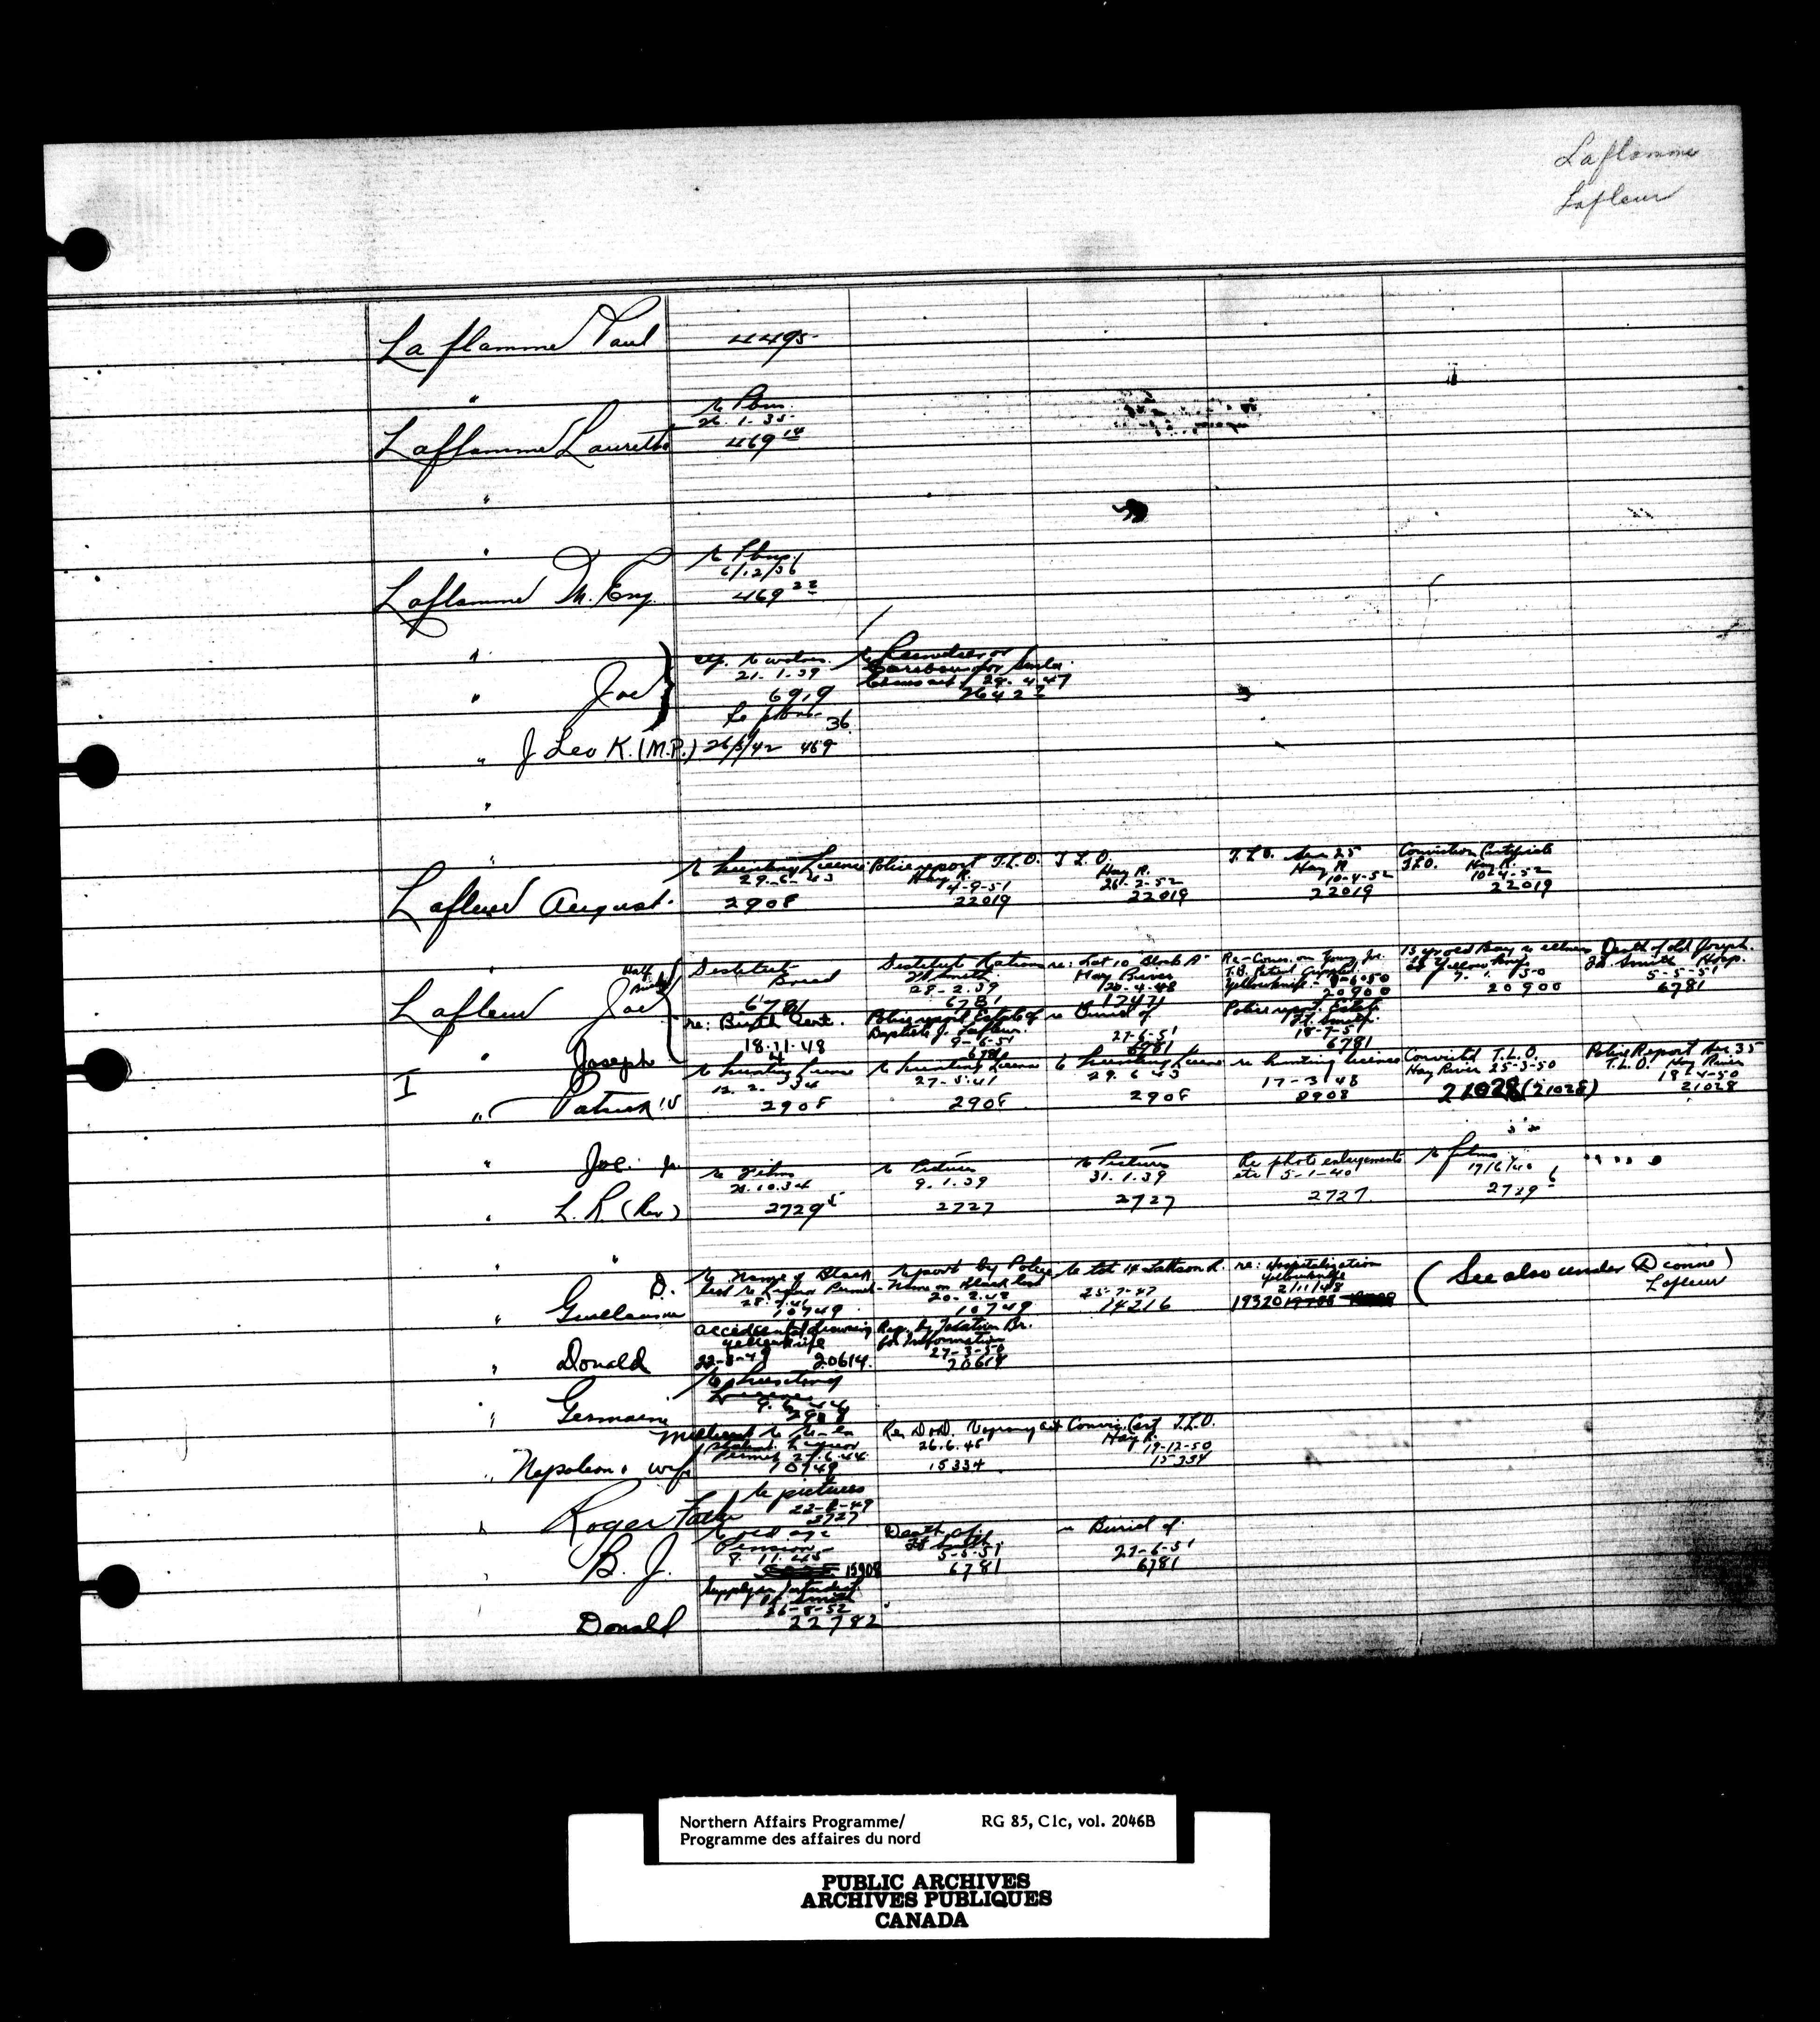 Laflamme
Lafleur
La flamme Paul
4495
"
26.1.35
Laflamme Lauretta
469 14
"
"
6/12/36
Laflamme
469 22
"
re wolves
21.1.39
Reindeer or
28.4.47
" Joe
6919
2642
36
" J Leo K. (M.P.)
26/3/42 469
"
"
re hunting Licence
29-6-43
Police report T.L.O.
Hay R.
4-9-51
T.L.O.
Hay R.
26-2-52
T.L.O. Sec 25
Hay R
10-4-52
Conviction Certificate
T.L.O. Hay R.
10-4-52
Lafleur August
2908
22019
22019
22019
22019
"
Half
Breed
Lafleur Joe
Destitute
Breed
6781
Destitute Rations
Ft Smith
28-2-39
6781
re: Lot 10 Block A
Hay River
20-4-48
17471
T.B. Patient
Yellowknife
20900
13 yr old Boy re illness
at Yellowknife
20900
Death of old Joseph.
Ft. Smith Hosp.
5-5-51
6781
" Joseph
re: Birth Cert.
18-11-48
Police report Estate of
Baptiste J. Lafleur.
9-6-51
6781
re Burial of
27-6-51
6781
Police report Estate
Ft. Smith
18-7-51
6781
I
" Patrick
re hunting Licence
12.2.34
2908
re hunting Licence
27-5-41
2908
re hunting Licence
29.6.43
2908
re hunting licence
17-3-48
2908
Convicted T.L.O.
Hay River 25-3-50
21028 (21028)
Police Report Sec 35
T.L.O. Hay River
18-4-50
21028
" Joe. Jr.
" L. R. (Rev)
re Films
21.10.34
2729 5
re Pictures
9.1.39
2727
re Pictures
31.1.39
2727
Re photo enlargements
etc 5-1-40
2727
re films
17/6/40
2729 6
"
" D.
Guillaume
re Name of Black
list re Liquor Permit
10749
report by Police
Name on Black list
20-2-48
10749
re lot 14
25-7-47
14216
re: Hospitalization
Yellowknife
2/11/48
19320
(See also under D
Lafleur)
" Donald
accidental drowning
Yellowknife
20614
Req. by Taxation Br.
for Information
27-3-50
20614
" Germaine
re hunting
Licence
2908
" Napoleon & wife
Permit 27.6.44
10749
26.6.45
15334
Convic. Cert T.L.O.
Hay R.
19-12-50
15334
" Roger Father
re pictures
22-8-49
2727
B. J.
re old age
Pension
8.11.45
15908
Death of
Ft Smith
5-5-51
6781
re Burial of
27-6-51
6781
Donald
Ft. Smith
26-8-52
22782
Northern Affairs Programme/
Programme des affaires du nord
RG 85, C1c, vol. 2046B
PUBLIC ARCHIVES
ARCHIVES PUBLIQUES
CANADA